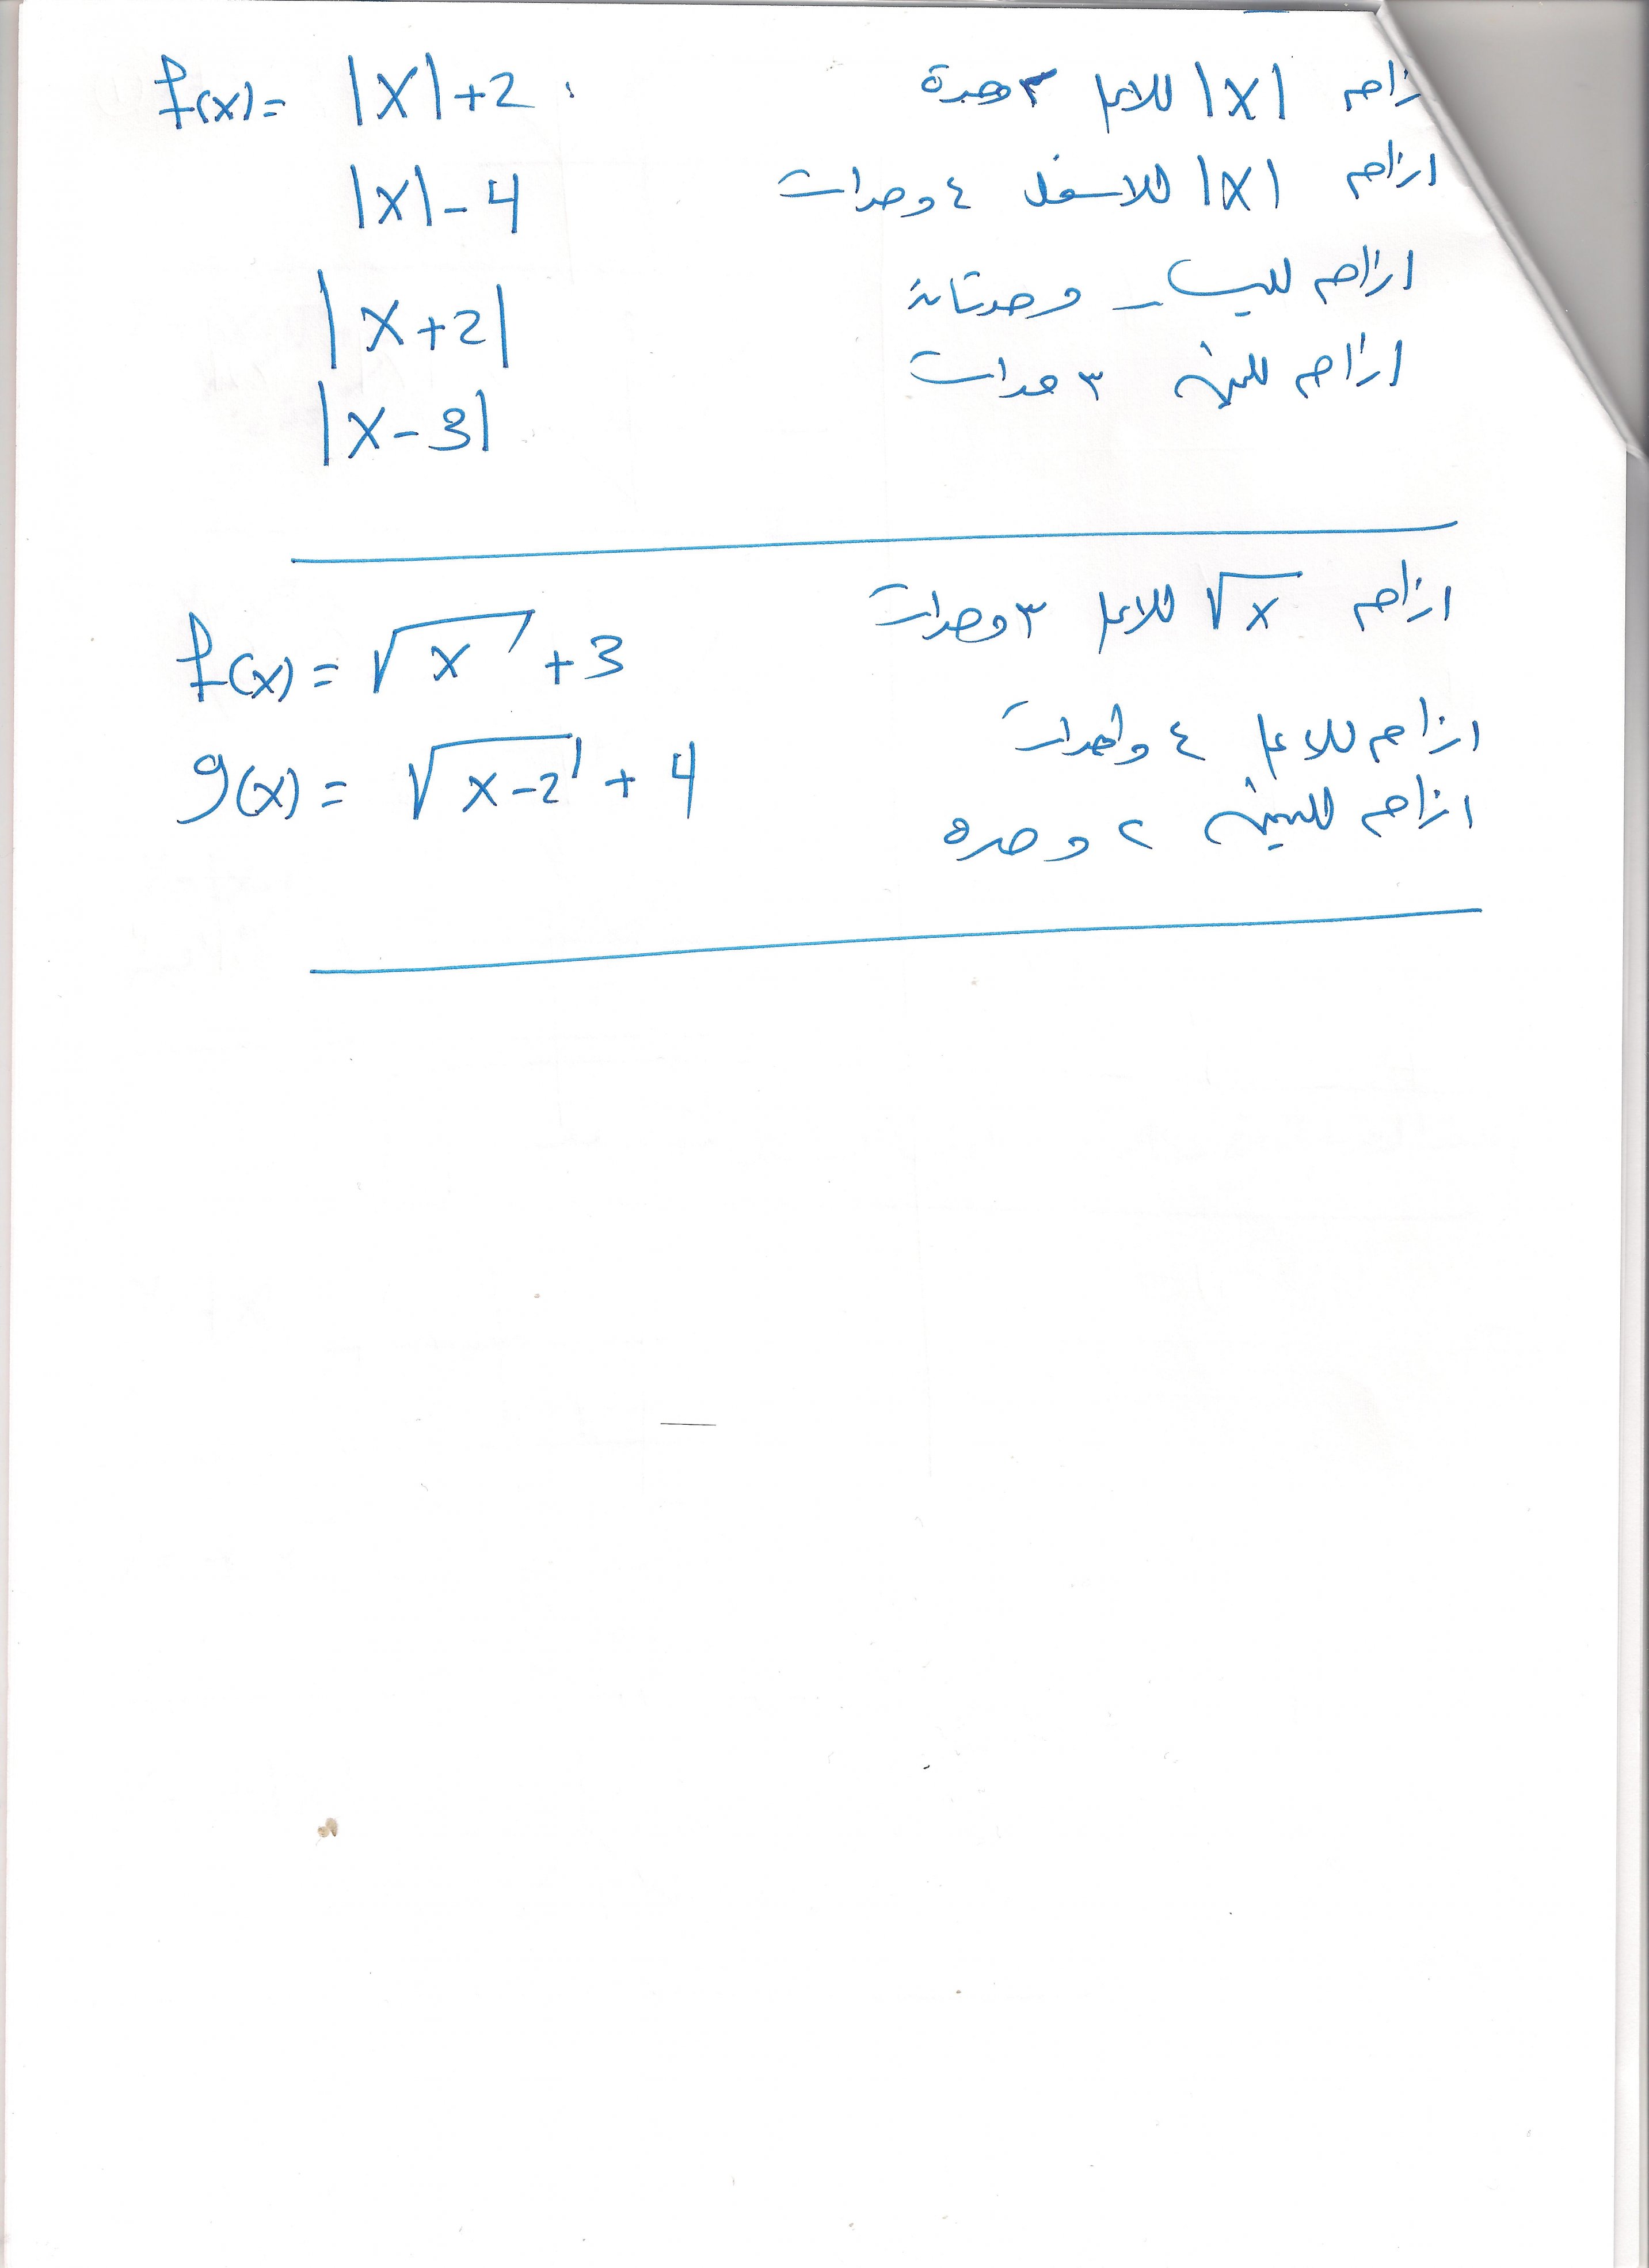 f(x) = |x| + 2 ازاحة |x| للاعلى ٢ وحدة
|x| - 4 ازاحة |x| للاسفل ٤ وحدات
|x + 2| ازاحة لليسار وحدتان
|x - 3| ازاحة لليمين ٣ وحدات
f(x) = √x + 3 ازاحة √x للاعلى ٣ وحدات
g(x) = √x-2 + 4 ازاحة للاعلى ٤ واحدات
ازاحة لليمين ٢ وحده